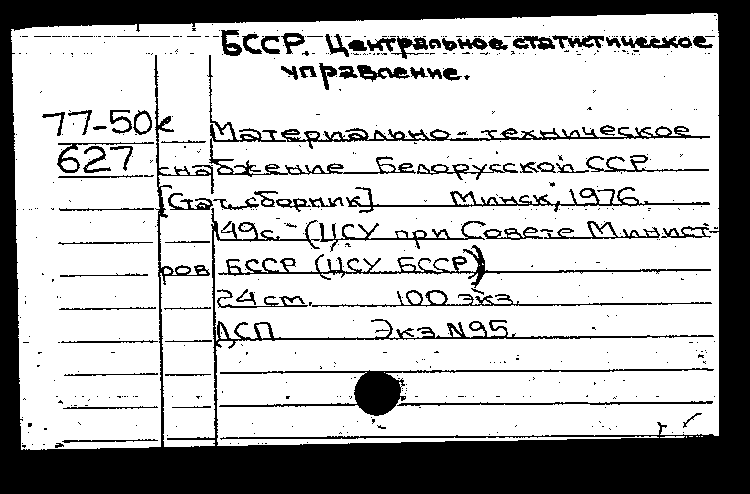 БССР. Центральное статистическое
управление.
77-50к Материально-техническое
627 снабжение Белорусской ССР
[Стат. сборник] Минск, 1976.
149с. (ЦСУ при Совете Минист-
ров БССР (ЦСУ БССР)
24 cm. 100 экз.
ДСП Экз. N95.